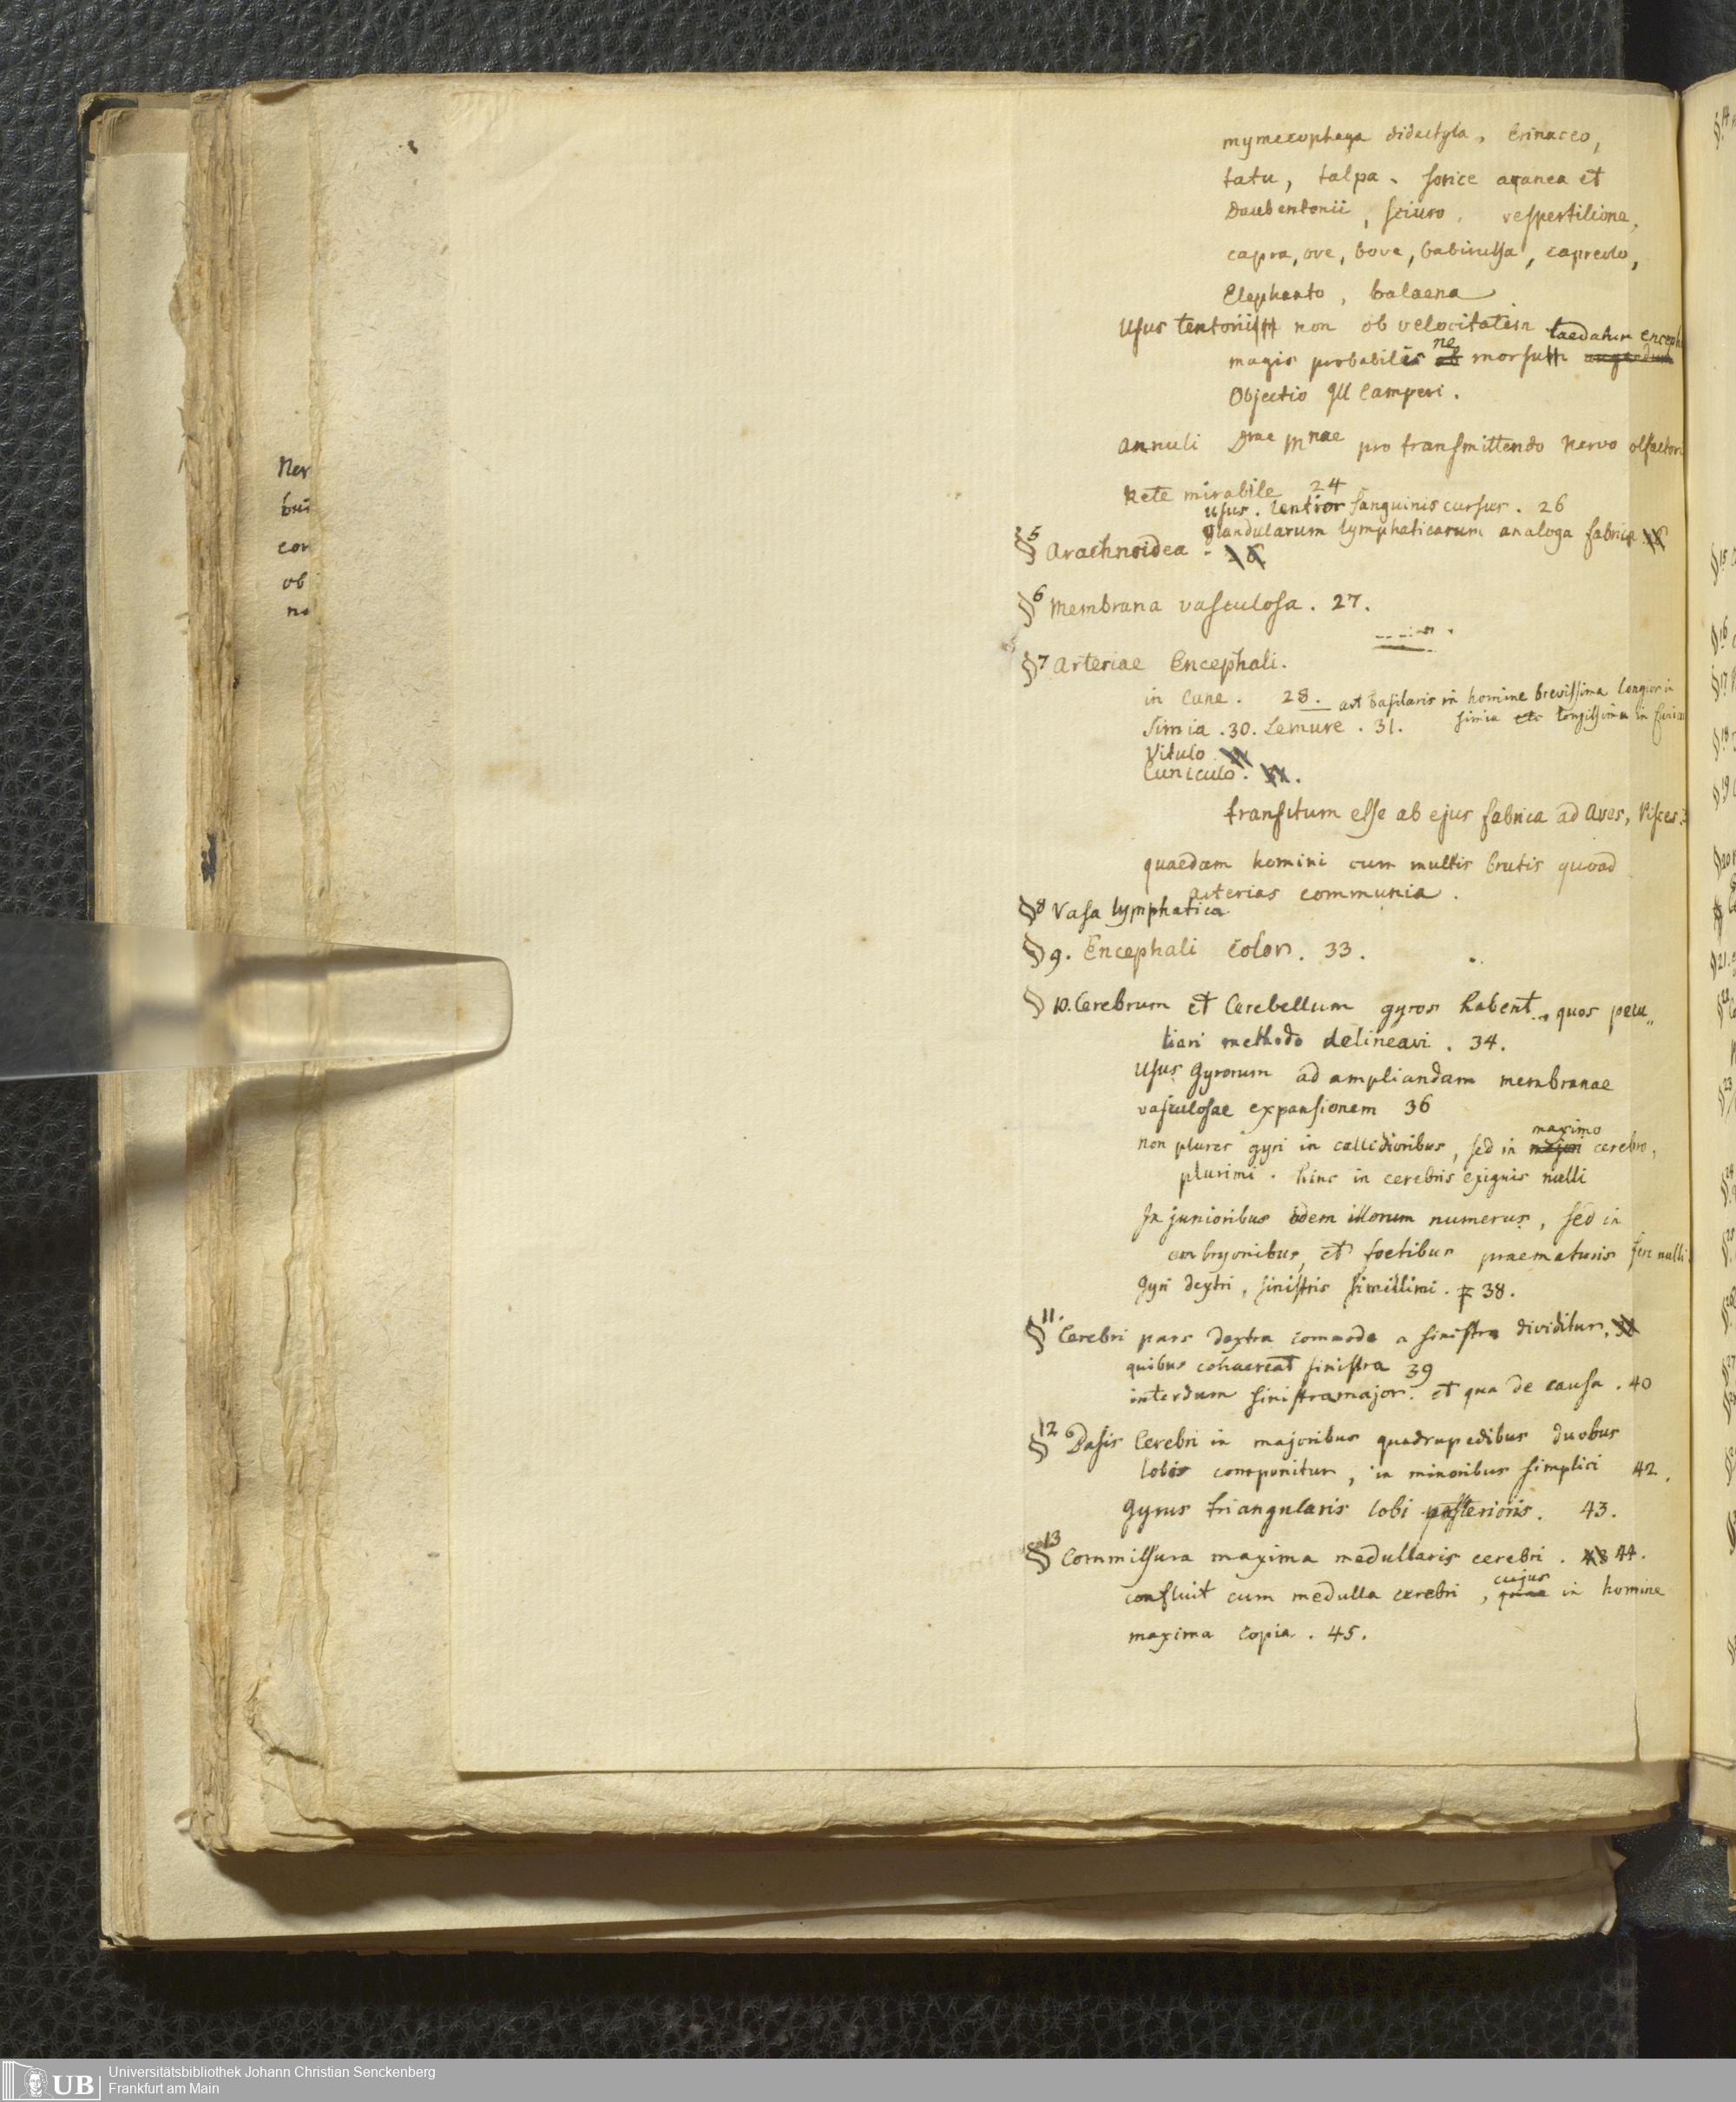 mymecophaga didactyla, Erinaceo,
tatu, talpa, sorice aranea et
Daubentonii, sciuro, vespertilione,
capra, ove, bove, babirussa, capreolo,
Elephanto, balaena
Usus tentorii non ob velocitatem
taedatur enceph
magis probabilis ob ne morsu augendum
Objectio Ill Camperi.
annuli Drae Mnae pro transmittendo Nervo olfactori
Rete mirabile 24
usus. lentior sanguinis cursus. 26
glandularum lymphaticarum analoga fabrica
§5 Arachnoidea
§6 Membrana vasculosa. 27.
§7 Arteriae Encephali.
in Cane. 28. art basilaris in homine brevissima longior in
Simia. 30. Lemure. 31. simia etc longissima in
Vitulo
Cuniculo.
transitum esse ab ejus fabrica ad Aves, Pisces
quaedam homini cum multis brutis quoad
arterias communia.
§8 Vasa lymphatica
§9. Encephali color. 33.
§10. Cerebrum et Cerebellum gyros habent, quos pecu„
liari methodo delineavi. 34.
Usus Gyrorum ad ampliandam membranae
vasculosae expansionem 36
maximo
non plures gyri in callidioribus, sed in majori cerebro,
plurimi. hinc in cerebris exiguis nulli
In junioribus idem illorum numerus, sed in
embryonibus, et foetibus praematuris fere nulli
Gyri dextri, sinistris simillimi. 38.
§11. Cerebri pars dextra commode a sinistra dividitur.
quibus cohaereat sinistra 39
interdum sinistra major. et qua de causa. 40
§12 Basis Cerebri in majoribus quadrupedibus duobus
lobis componitur, in minoribus simplici 42.
Gyrus triangularis lobi posterioris. 43.
§13 Commissura maxima medullaris cerebri. 43 44.
cujus
confluit cum medulla cerebri, in homine
maxima copia. 45.
Ner
bus
con
ob
UB
Universitätsbibliothek Johann Christian Senckenberg
Frankfurt am Main